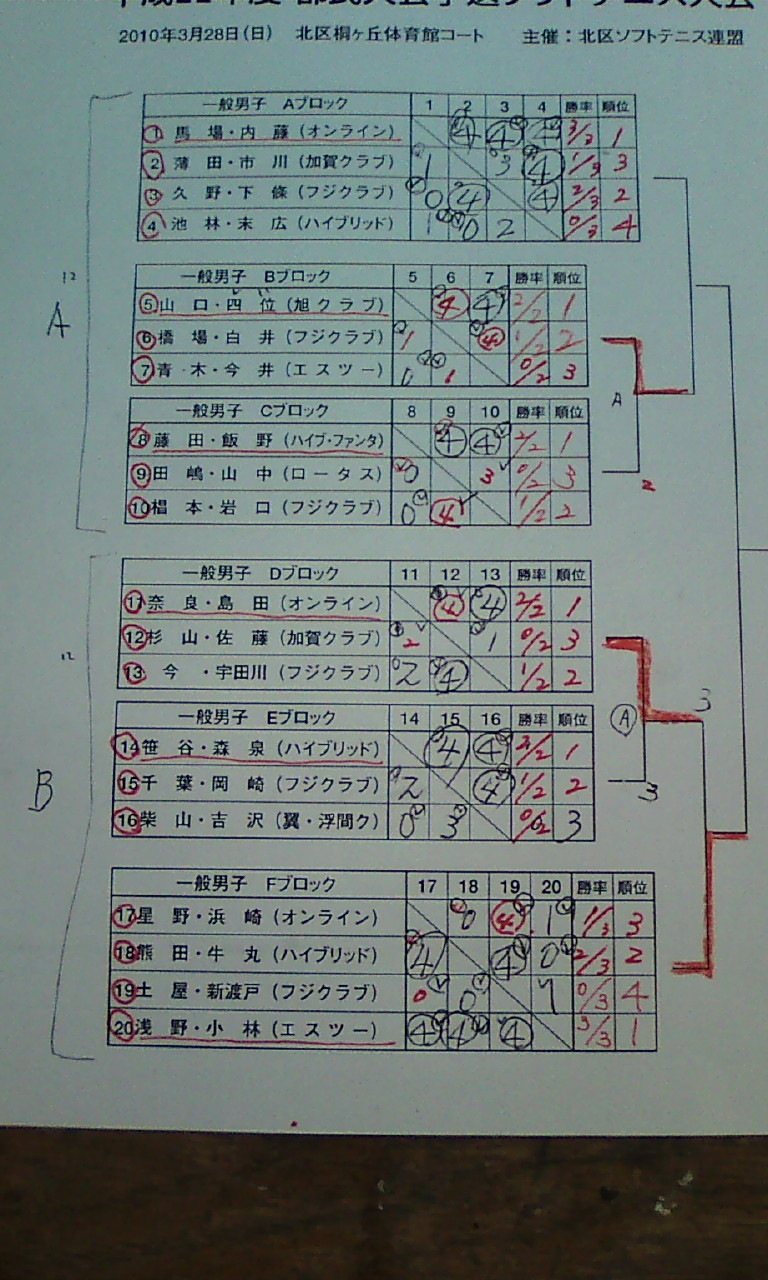 2010年3月28日（日） 北区桐ヶ丘体育館コート 主催：北区ソフトテニス連盟
一般男子 Aブロック 1 2 3 4 勝率 順位
1 馬 場・内 藤（オンライン） ④ ④ ④ 3/3 1
2 薄 田・市 川（加賀クラブ） 1 3 ④ 1/3 3
3 久 野・下 條（フジクラブ） 0 ④ ④ 2/3 2
4 池 林・末 広（ハイブリッド） 1 0 2 0/3 4
12
A
一般男子 Bブロック 5 6 7 勝率 順位
5 山 口・四 位（旭クラブ） ④ ④ 2/2 1
6 橋 場・白 井（フジクラブ） 1 ④ 1/2 2
7 青 木・今 井（エスツー） 0 1 0/2 3
A
一般男子 Cブロック 8 9 10 勝率 順位
8 藤 田・飯 野（ハイブ・ファンタ） ④ ④ 2/2 1
9 田 嶋・山 中（ロータス） 0 3 0/2 3
10 椙 本・岩 口（フジクラブ） 0 ④ 1/2 2
2
一般男子 Dブロック 11 12 13 勝率 順位
11 奈 良・島 田（オンライン） ④ ④ 2/2 1
12 杉 山・佐 藤（加賀クラブ） 2 1 0/2 3
13 今 ・宇田川（フジクラブ） 2 ④ 1/2 2
12
B
一般男子 Eブロック 14 15 16 勝率 順位
14 笹 谷・森 泉（ハイブリッド） ④ ④ 2/2 1
15 千 葉・岡 崎（フジクラブ） 2 ④ 1/2 2
16 柴 山・吉 沢（翼・浮間ク） 0 3 0/2 3
Ⓐ
3
3
一般男子 Fブロック 17 18 19 20 勝率 順位
17 星 野・浜 崎（オンライン） 0 ④ 1 1/3 3
18 熊 田・牛 丸（ハイブリッド） ④ ④ 0 2/3 2
19 土 屋・新渡戸（フジクラブ） 0 0 1 0/3 4
20 浅 野・小 林（エスツー） ④ ④ ④ 3/3 1